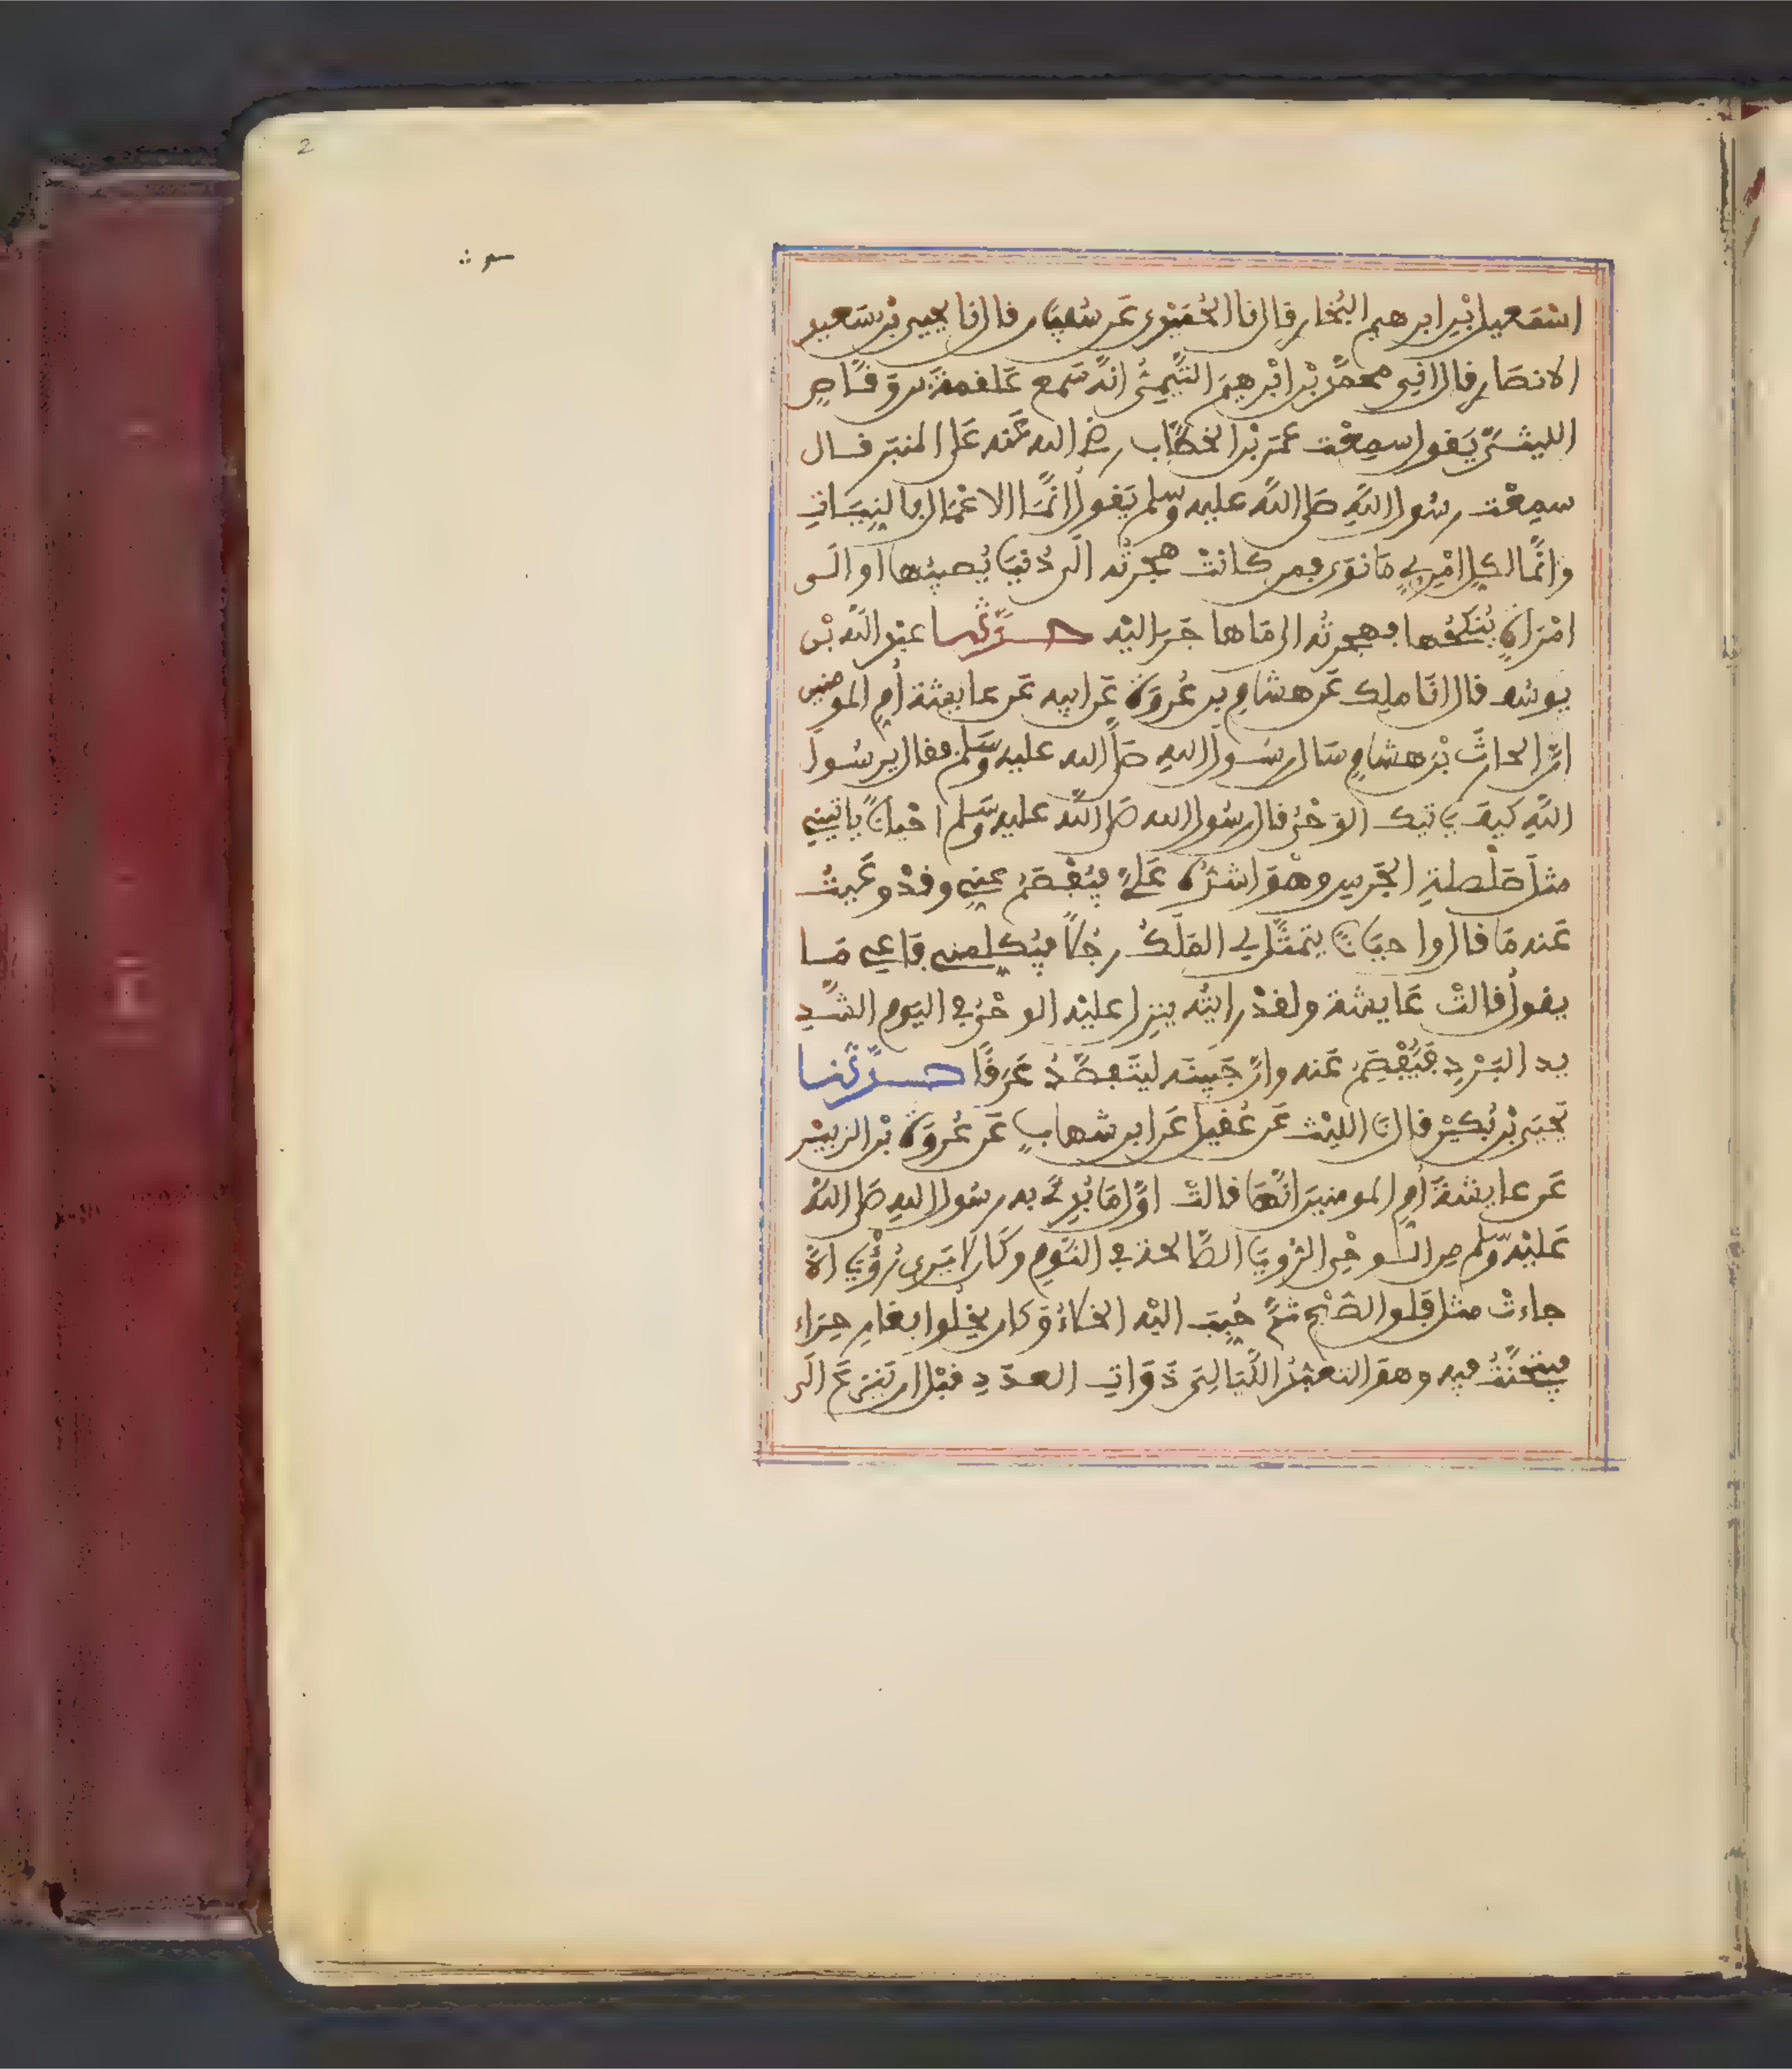 2
اسمعيل بن ابرهيم البخاري قال نا الحميدي عن سفيان قال نا يحيى بن سعيد
الانصاري قال اني محمد بن ابرهيم التيمي انه سمع علقمة بن وقاص
الليثي يقول سمعت عمر بن الخطاب رضي الله عنه على المنبر قال
سمعت رسول الله صلى الله عليه وسلم يقول انما الاعمال بالنيات
وانما لكل امرئ ما نوى فمن كانت هجرته الى دنيا يصيبها او الى
امراة ينكحها فهجرته الى ما هاجر اليه حدثنا عبد الله بن
يوسف قال انا ملك عن هشام بن عروة عن ابيه عن عايشة ام المومنين
ان الحارث بن هشام سال رسول الله صلى الله عليه وسلم فقال يرسول
الله كيف ياتيك الوحي قال رسول الله صلى الله عليه وسلم احيانا ياتيني
مثل صلصلة الجرس وهو اشده علي فيفصم عني وقد وعيت
عنه ما قال واحيانا يتمثل لي الملك رجلا فيكلمني فاعي ما
يقول قالت عايشة ولقد رايته ينزل عليه الوحي في اليوم الشد
يد البرد فيفصم عنه وان جبينه ليتفصد عرقا حدثنا
يحيى بن بكير قال نا الليث عن عقيل عن ابن شهاب عن عروة بن الزبير
عن عايشة ام المومنين انها قالت اول ما بدئ به رسول الله صلى الله
عليه وسلم من الوحي الرويا الصالحة في النوم وكان لا يرى رؤيا الا
جاءت مثل فلق الصبح ثم حبب اليه الخلاء وكان يخلوا بغار حراء
فيتحنث فيه وهو التعبد الليالي ذوات العدد قبل ان ينزع الى